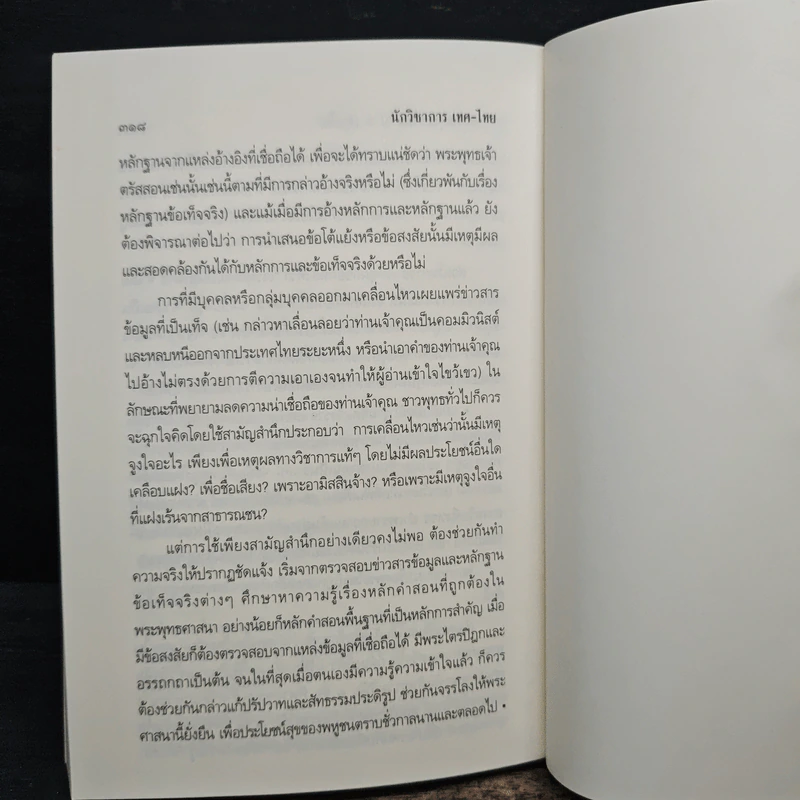 ๓๑๘ นักวิชาการ เทศ-ไทย
หลักฐานจากแหล่งอ้างอิงที่เชื่อถือได้ เพื่อจะได้ทราบแน่ชัดว่า พระพุทธเจ้า
ตรัสสอนเช่นนั้นเช่นนี้ตามที่มีการกล่าวอ้างจริงหรือไม่ (ซึ่งเกี่ยวพันกับเรื่อง
หลักฐานข้อเท็จจริง) และแม้เมื่อมีการอ้างหลักการและหลักฐานแล้ว ยัง
ต้องพิจารณาต่อไปว่า การนำเสนอข้อโต้แย้งหรือข้อสงสัยนั้นมีเหตุมีผล
และสอดคล้องกันได้กับหลักการและข้อเท็จจริงด้วยหรือไม่
การที่มีบุคคลหรือกลุ่มบุคคลออกมาเคลื่อนไหวเผยแพร่ข่าวสาร
ข้อมูลที่เป็นเท็จ (เช่น กล่าวหาเลื่อนลอยว่าท่านเจ้าคุณเป็นคอมมิวนิสต์
และหลบหนีออกจากประเทศไทยระยะหนึ่ง หรือนำเอาคำของท่านเจ้าคุณ
ไปอ้างไม่ตรงด้วยการตีความเอาเองจนทำให้ผู้อ่านเข้าใจไขว้เขว) ใน
ลักษณะที่พยายามลดความน่าเชื่อถือของท่านเจ้าคุณ ชาวพุทธทั่วไปก็ควร
จะฉุกใจคิดโดยใช้สามัญสำนึกประกอบว่า การเคลื่อนไหวเช่นว่านั้นมีเหตุ
จูงใจอะไร เพียงเพื่อเหตุผลทางวิชาการแท้ๆ โดยไม่มีผลประโยชน์อื่นใด
เคลือบแฝง? เพื่อชื่อเสียง? เพราะอามิสสินจ้าง? หรือเพราะมีเหตุจูงใจอื่น
ที่แฝงเร้นจากสาธารณชน?
แต่การใช้เพียงสามัญสำนึกอย่างเดียวคงไม่พอ ต้องช่วยกันทำ
ความจริงให้ปรากฏชัดแจ้ง เริ่มจากตรวจสอบข่าวสารข้อมูลและหลักฐาน
ข้อเท็จจริงต่างๆ ศึกษาหาความรู้เรื่องหลักคำสอนที่ถูกต้องใน
พระพุทธศาสนา อย่างน้อยก็หลักคำสอนพื้นฐานที่เป็นหลักการสำคัญ เมื่อ
มีข้อสงสัยก็ต้องตรวจสอบจากแหล่งข้อมูลที่เชื่อถือได้ มีพระไตรปิฎกและ
อรรถกถาเป็นต้น จนในที่สุดเมื่อตนเองมีความรู้ความเข้าใจแล้ว ก็ควร
ต้องช่วยกันกล่าวแก้ปรัปวาทและสัทธรรมประติรูป ช่วยกันจรรโลงให้พระ
ศาสนานี้ยั่งยืน เพื่อประโยชน์สุขของพหูชนตราบชั่วกาลนานและตลอดไป •